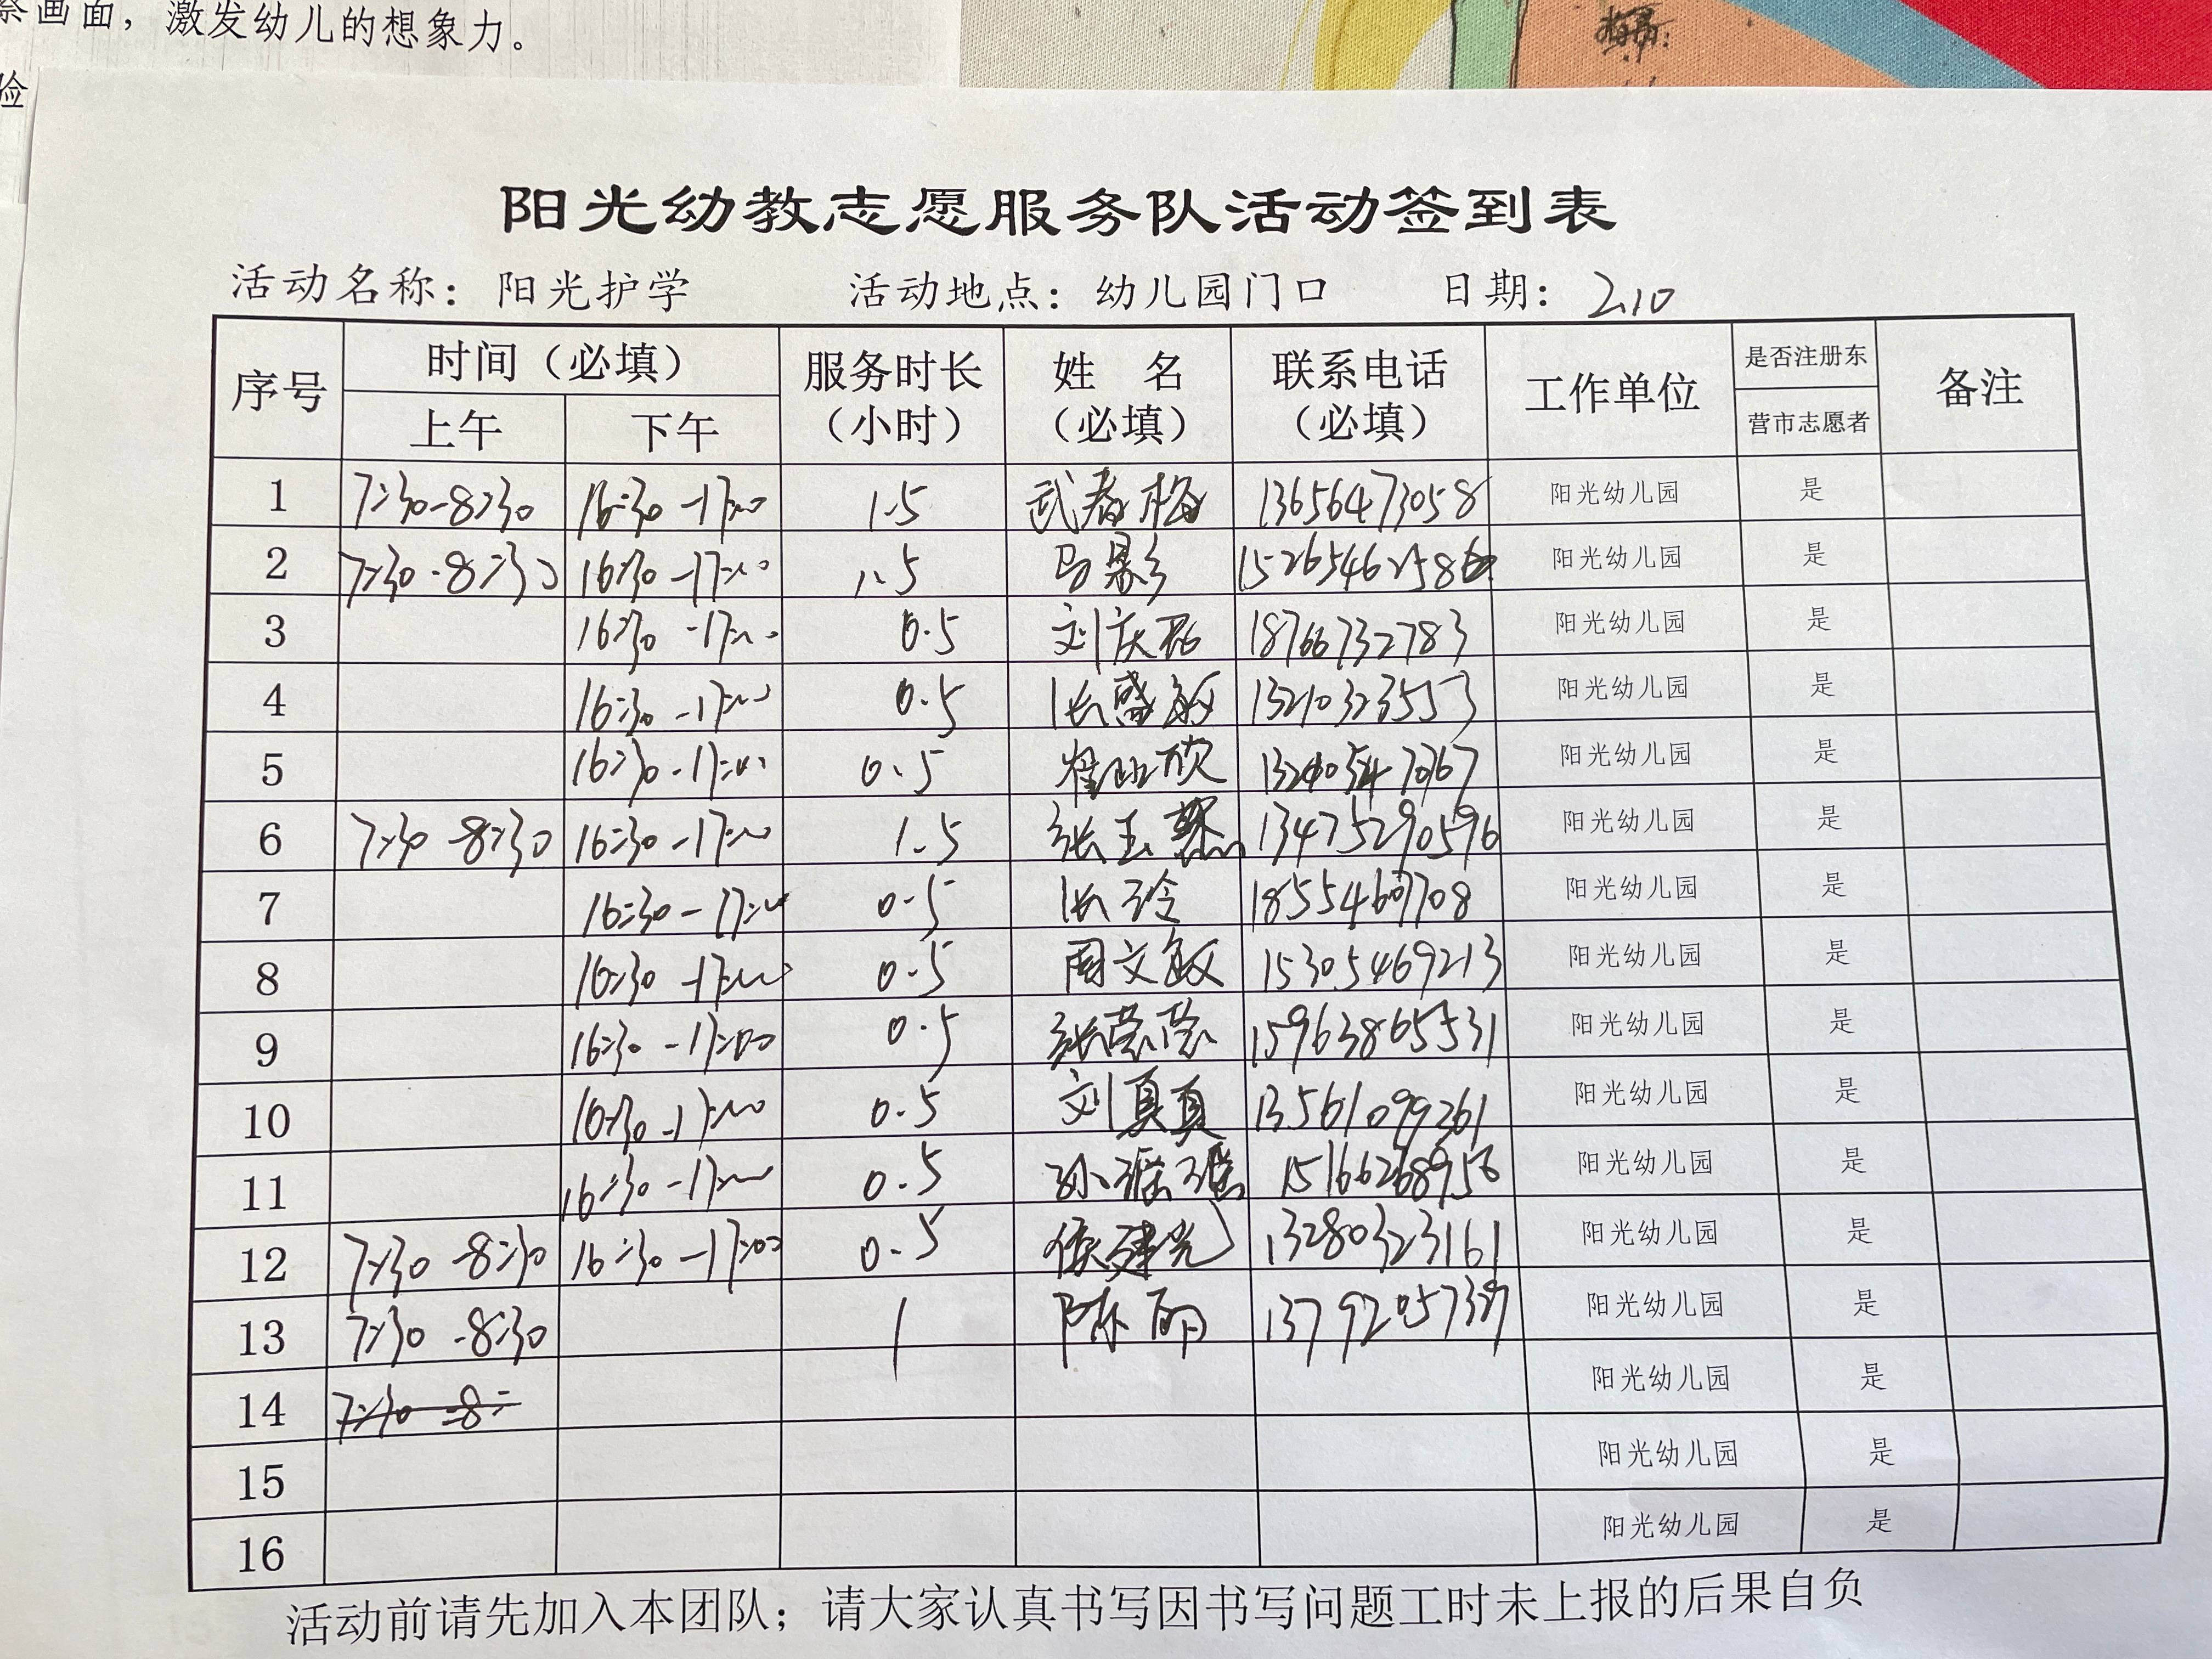 察画面，激发幼儿的想象力。
险
阳光幼教志愿服务队活动签到表
活动名称：阳光护学 活动地点：幼儿园门口 日期：2.10
序号 时间（必填） 服务时长（小时） 姓 名（必填） 联系电话（必填） 工作单位 是否注册东营市志愿者 备注
上午 下午
1 7:30-8:30 16:30-17:00 1.5 武春梅 13656473058 阳光幼儿园 是
2 7:30-8:30 16:30-17:00 1.5 马景彡 阳光幼儿园 是
3 16:30-17:00 0.5 刘庆磊 18766732783 阳光幼儿园 是
4 16:30-17:00 0.5 张盛敏 13210323553 阳光幼儿园 是
5 16:30-17:00 0.5 阳光幼儿园 是
6 7:30-8:30 16:30-17:00 1.5 张玉慧 13475290596 阳光幼儿园 是
7 16:30-17:00 0.5 张玲 阳光幼儿园 是
8 16:30-17:00 0.5 周文敏 15305469213 阳光幼儿园 是
9 16:30-17:00 0.5 张蓉蓉 15963865531 阳光幼儿园 是
10 16:30-17:00 0.5 刘真真 13561099261 阳光幼儿园 是
11 16:30-17:00 0.5 孙瑶瑶 阳光幼儿园 是
12 7:30-8:30 16:30-17:00 0.5 侯建光 13280323161 阳光幼儿园 是
13 7:30-8:30 1 陈丽 阳光幼儿园 是
14 7:30-8: 阳光幼儿园 是
15 阳光幼儿园 是
16 阳光幼儿园 是
活动前请先加入本团队；请大家认真书写因书写问题工时未上报的后果自负